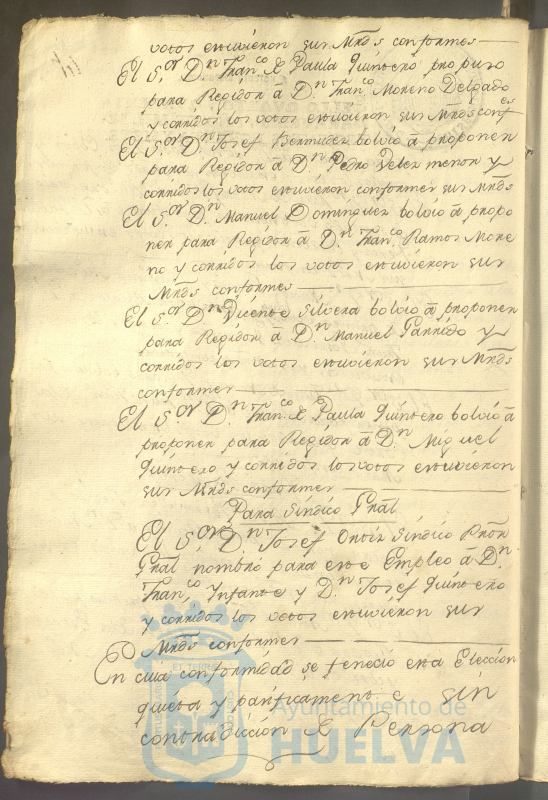 votos estuvieron sus Mrds conformes
El S.or D.n Fran.co de Paula Quintero propuso
para Regidor â D.n Fran.co Moreno Delgado
y corridos los votos estuvieron sus Mrds conf.es
El S.or D.n Josef Bermudez bolvio â proponer
para Regidor â D.n Pedro Velez menor y
corridos los votos estuvieron conformes sus Mrds
El S.or D.n Manuel Dominguez bolvio â propo
ner para Regidor â D.n Fran.co Ramos More
no y corridos los votos estuvieron sus
Mrds conformes
El S.or D.n Vicente Silvera bolvio â proponer
para Regidor â D.n Manuel Garrido y
corridos los votos estuvieron sus Mrds
conformes
El S.or D.n Fran.co de Paula Quintero bolvio â
proponer para Regidor â D.n Miguel
Quintero y corridos los votos estuvieron
sus Mrds conformes
Para Sindico Gral
El S.or D.n Josef Ortiz Sindico Pror
Gral nombró para este Empleo â D.n
Fran.co Ynfante y D.n Josef Quintero
y corridos los votos estuvieron sus
Mrds conformes
En cuia conformidad se fenecio esta Eleccion
quieta y pacificamente sin
contradiccion de Persona
Ayuntamiento de
HUELVA